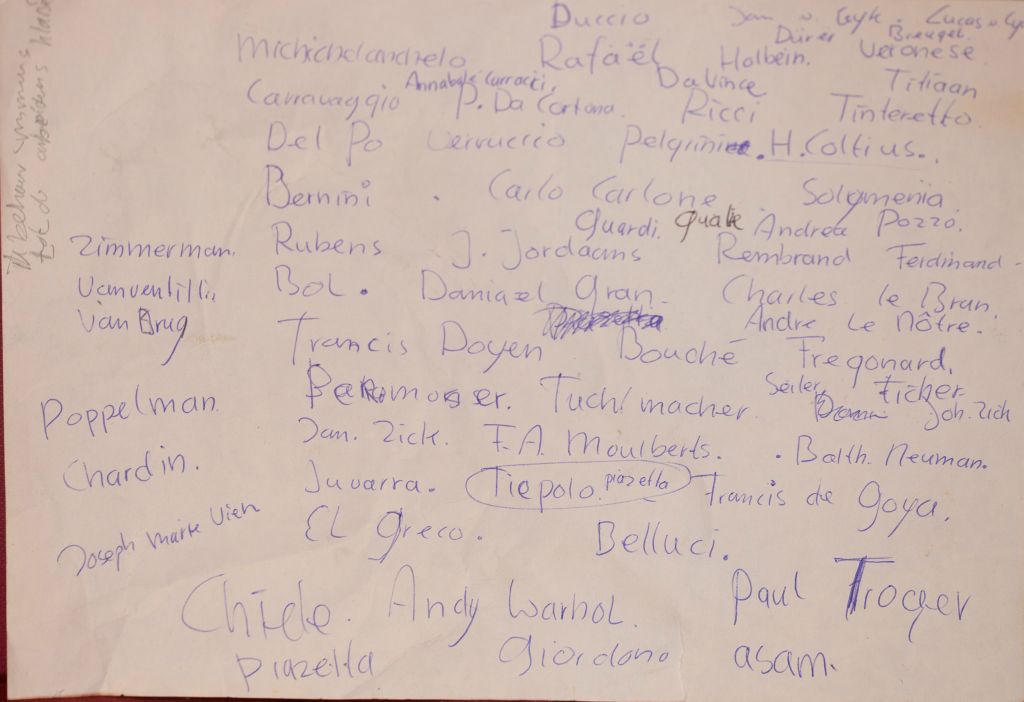 Duccio Jan v. Eyk. Lucas v
Dürer Breugel
Michichelandrelo Rafaël Holbein. Veronese
Annabale Carracci, Da Vince Titiaan
Carravaggio P. Da Cortona. Ricci Tinteretto.
Del Po Verruccio Pelgrini. H. Coltius.
Bernini . Carlo Carlone Solymenia
Guardi. Andrea Pozzo.
Zimmerman. Rubens J. Jordaans Rembrand Ferdinand -
Vanventilli Bol. Daniael Gran. Charles le Bran.
Van Brug Andre Le Nôtre.
Francis Doyen Bouché Fregonard.
Seiler, Ficher
Poppelman. Permoser. Tuchlmacher Joh. Zick
Jan. Zick. F.A. Moulberts. . Balth. Neuman.
Chardin. Juvarra. Tiepolo. piazetta Francis de Goya.
Joseph Marie Vien El Greco. Belluci.
Chiele. Andy Warhol. Paul Troger
Piazetta Giordano asam.